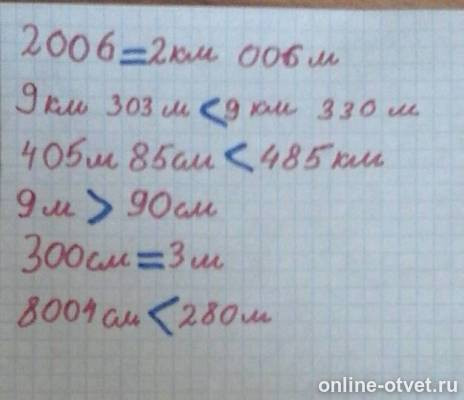 2006=2км 006м
9км 303м<9км 330м
405м 85см<485км
9м>90см
300см=3м
8001см<280м
online-otvet.ru